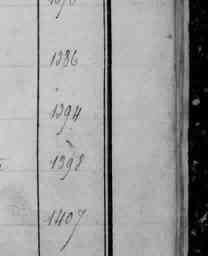 1386
1394
1398
1407